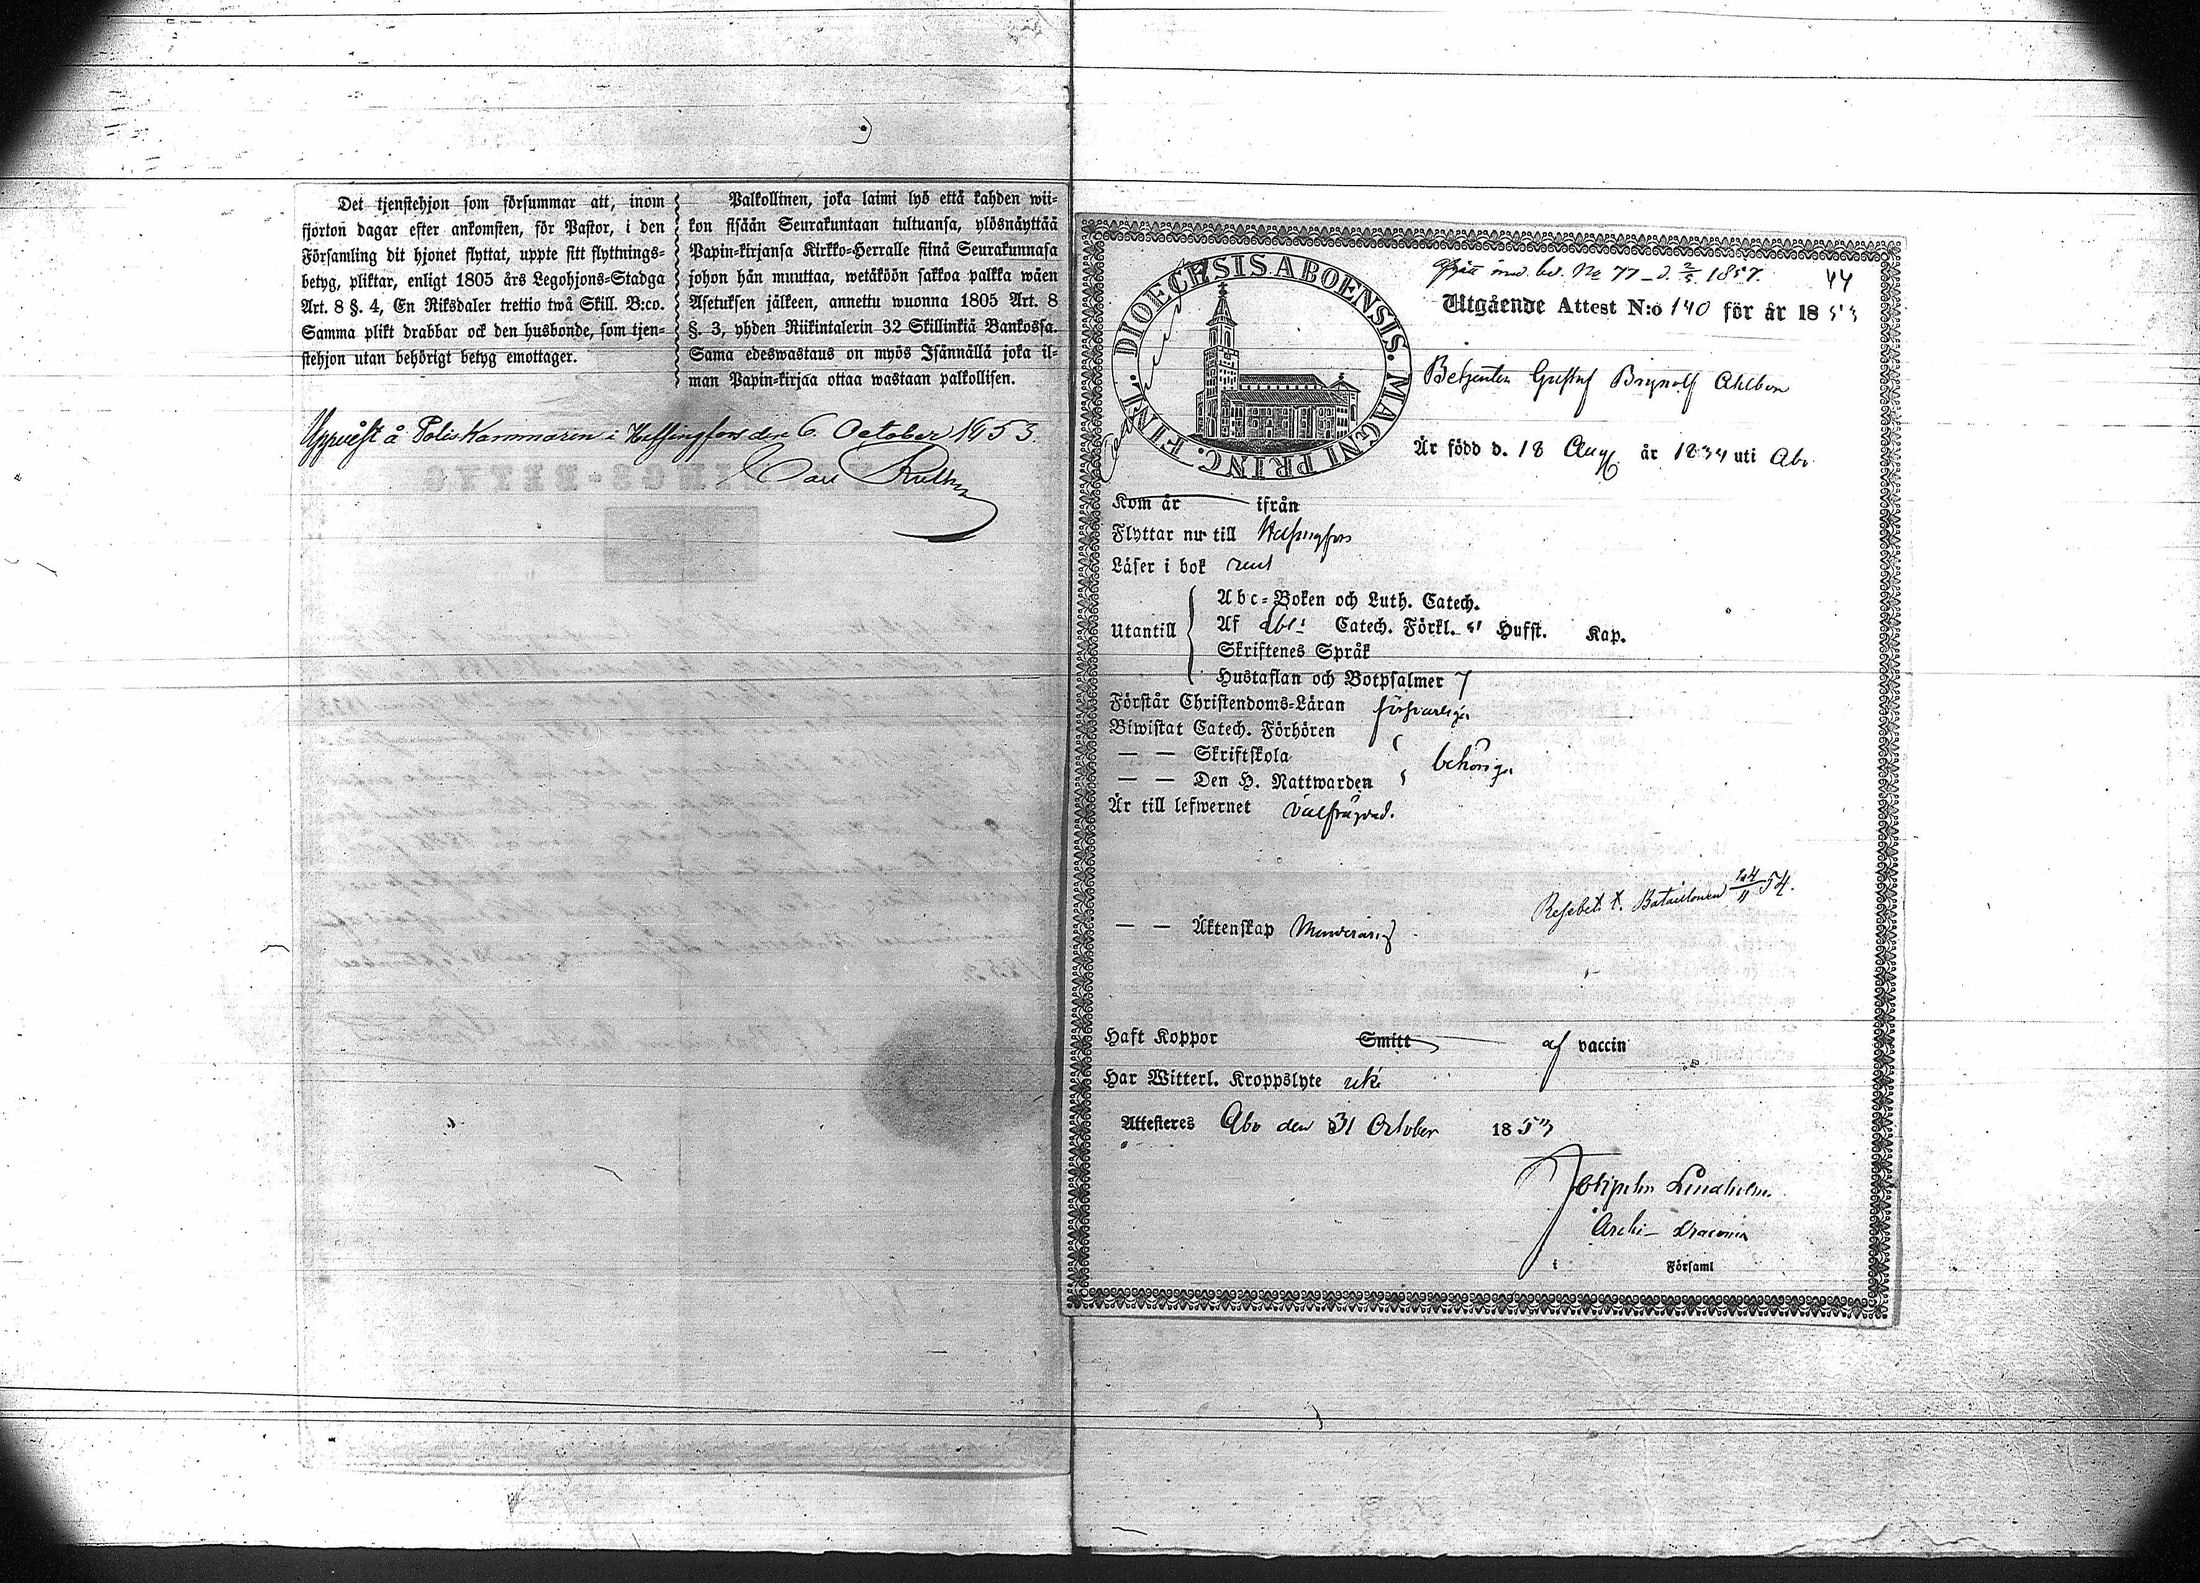 Det tjenstehjon som försummar att, inom
fjorton dagar efter ankomsten, för Pastor, i den
Församling dit hjonet flyttat, uppte sitt flyttnings-
betyg, pliktar, enligt 1805 års Legohjons-Stadga
Art. 8 §. 4, En Riksdaler trettio twå Skill. B:co.
Samma plikt drabbar ock den husbonde, som tjen-
stehjon utan behörigt betyg emottager.
Palkollinen, joka laimi lyö että kahden wii-
kon sisään Seurakuntaan tultuansa, ylösnäyttää
Papin-kirjansa Kirkko-Herralle siinä Seurakunnasa
johon hän muuttaa, wetäköön sakkoa palkka wäen
Asetuksen jälkeen, annettu wuonna 1805 Art. 8
§. 3, yhden Riikintalerin 32 Skillinkiä Bankossa.
Sama edeswastaus on myös Isännällä joka il-
man Papin-kirjaa ottaa wastaan palkollisen.
Uppvist å Poliskammaren i Helsingfors den 6 October 1853.
Carl
DIOECESIS ABOENSIS. MAGNI PRINC. FINL.
inv. bev. No 77 d. 2/5 1857.
44
Utgående Attest N:o 140 för år 1853
Betjenten Gustaf Brynolf Ahlbom
Är född d. 18 Aug. år 1834 uti Åbo
Kom år ifrån
Flyttar nu till Helsingfors
Läser i bok rent
Utantill
Abc-Boken och Luth. Catech.
Af Catech. Förkl. Hufst. Kap.
Skriftenes Språk
Hustaflan och Botpsalmer
Förstår Christendoms-Läran försvarligen
Biwistat Catech. Förhören
— — Skriftskola
behörigen
— — Den H. Nattwarden
Är till lefwernet välfräjdad.
Resebet. t. Bataillonen 24/11 54.
— — Äktenskap Minderårig
Haft Koppor Smitt af vaccin
Har Witterl. Kroppslyte icke
Attesteres Åbo den 31 October 1853
Lindholm
Archi-
i Församl